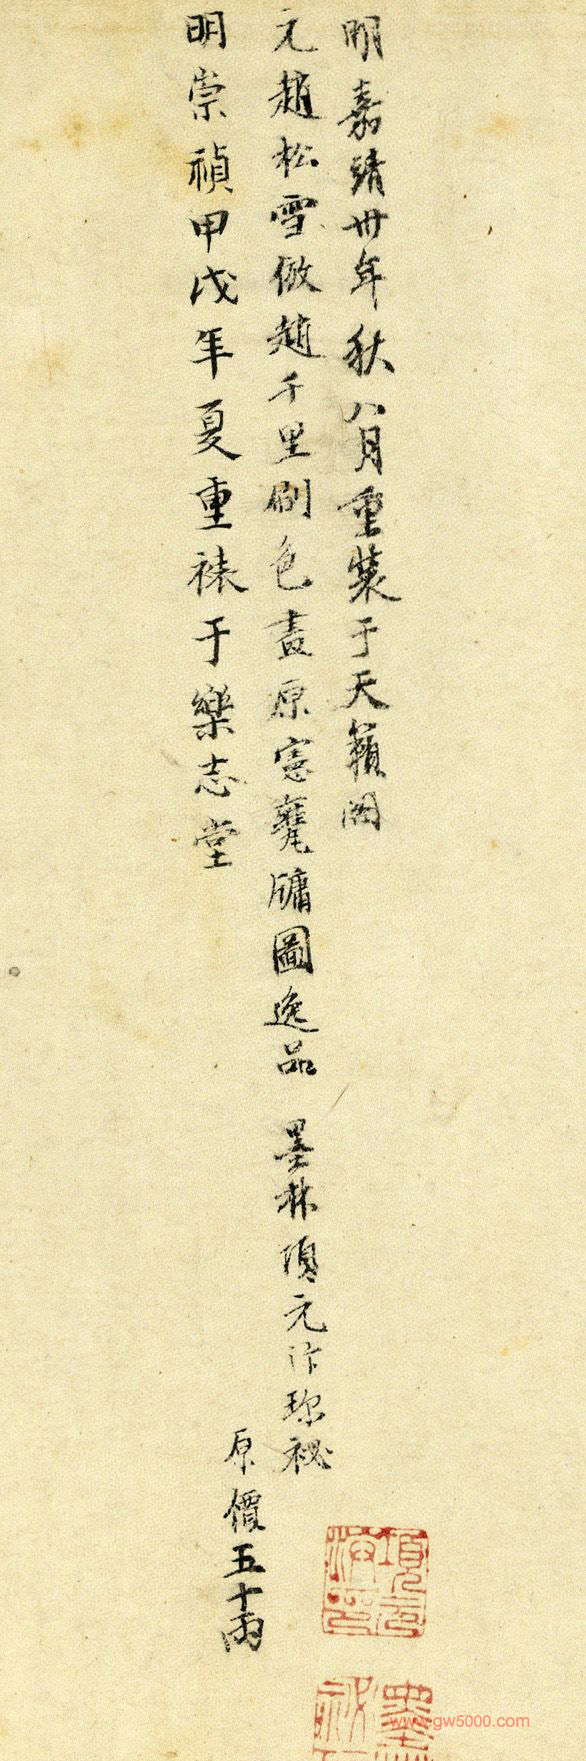 明嘉靖卅年秋八月重裝于天籟閣
元趙松雪倣趙千里刷色畫原憲甕牖圖逸品 墨林項元汴珍祕
原價五十兩
明崇禎甲戊年夏重裱于樂志堂
項元汴印
www.gw5000.com